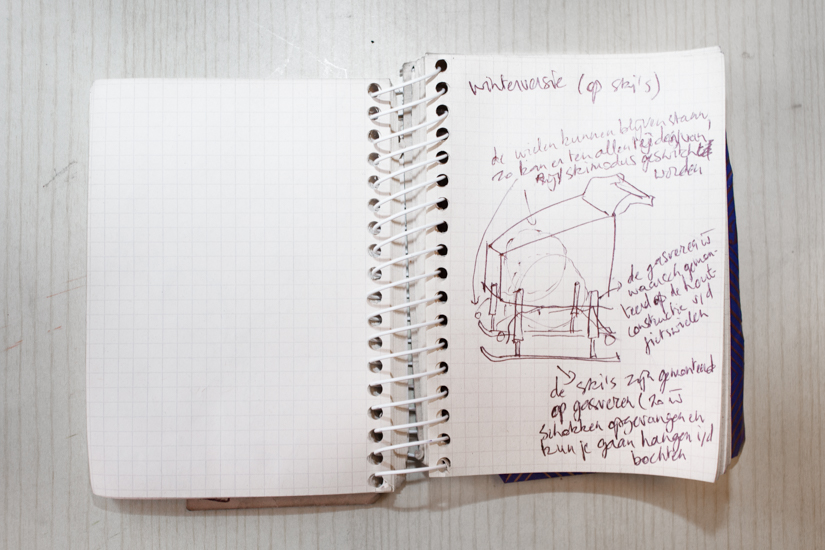 winterversie (op ski's)
de wielen kunnen blijven staan,
zo kan er ten allen tijde van
rij/skimodus geswitcht
worden
de gasveren w
gemon-
teerd op de hout-
constructie v/d
fietswielen
de ski's zijn gemonteerd
op gasveren (zo w
schokken opgevangen en
kun je gaan hangen i/d
bochten